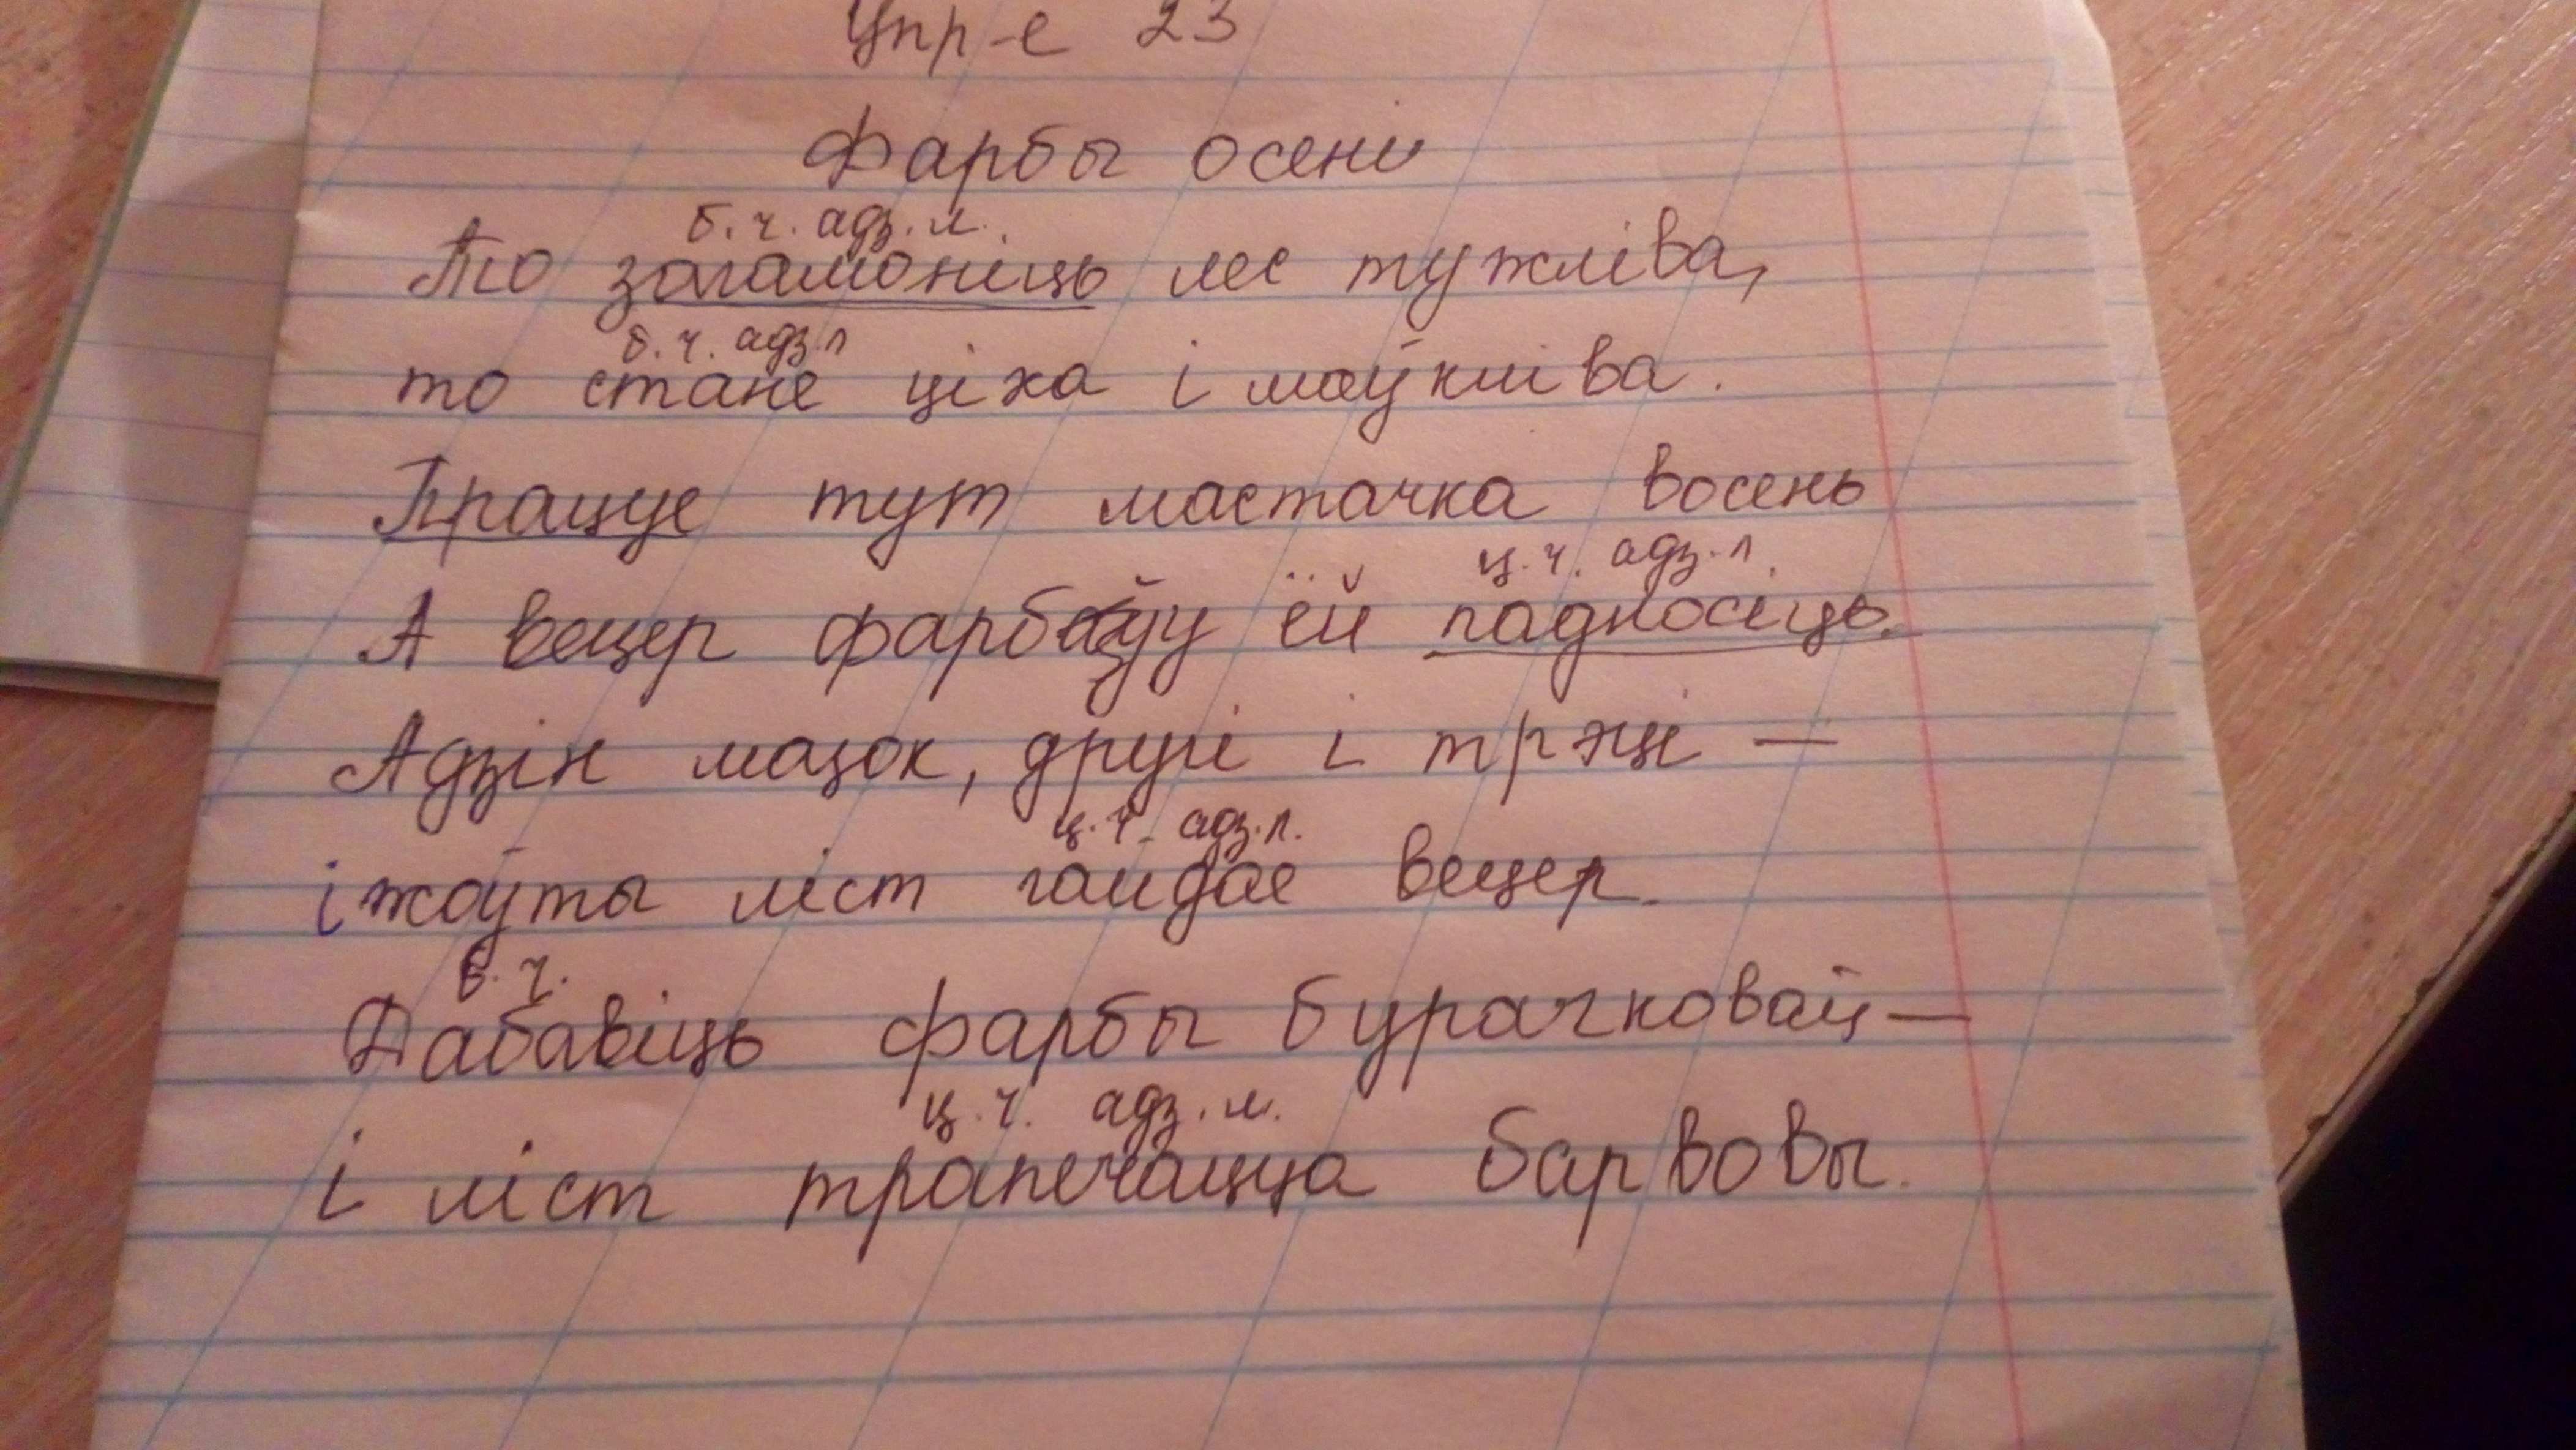 Упр-е 23
Фарбы осені
б.ч. адз.л.
То загамоніць лес тужліва,
б.ч. адз.л
то стане ціха і маўкліва.
Працуе тут мастачка восень
ц.ч. адз.л.
А вецер фарбу ёй падносіць.
Адзін мазок, другі і трэці —
ц.ч. адз.л.
і жоўты ліст гайдае вецер.
б.ч.
Дабавіць фарбы бурачковай —
ц.ч. адз.л.
і ліст трапечацца барвовы.